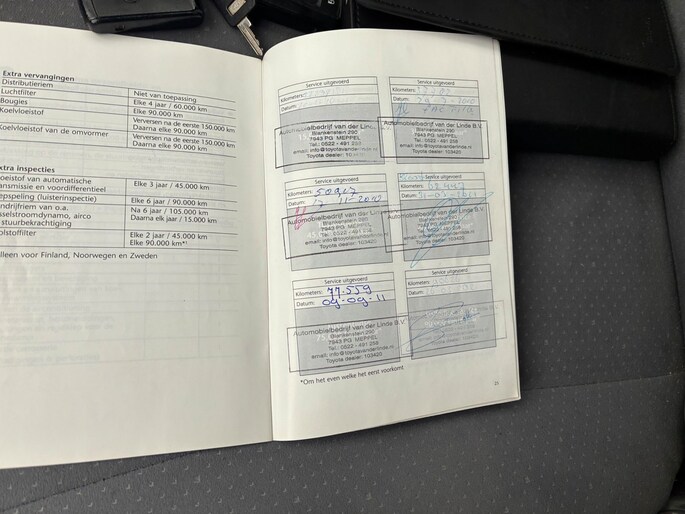 Extra vervangingen
Distributieriem
Luchtfilter Niet van toepassing
Bougies Elke 4 jaar / 60.000 km
Koelvloeistof Elke 90.000 km
Koelvloeistof van de omvormer Verversen na de eerste 150.000 km
Daarna elke 90.000 km
Verversen na de eerste 150.000 km
Daarna elke 90.000 km
xtra inspecties
oeistof van automatische
ansmissie en voordifferentieel Elke 3 jaar / 45.000 km
epspeling (luisterinspectie) Elke 6 jaar / 90.000 km
andrijfriem van o.a.
sselstroomdynamo, airco
stuurbekrachtiging Na 6 jaar / 105.000 km
Daarna elk jaar / 15.000 km
olstoffilter Elke 2 jaar / 45.000 km
Elke 90.000 km*¹
lleen voor Finland, Noorwegen en Zweden
Service uitgevoerd
Kilometers:
Datum:
Automobielbedrijf van der Linde
Blankenstein 290
7943 PG MEPPEL
Tel.: 0522 - 491 258
email: info@toyotavanderlinde.nl
Toyota dealer:
Service uitgevoerd
Kilometers:
Datum:
Automobielbedrijf van der Linde B.V.
Blankenstein 290
7943 PG MEPPEL
Tel.: 0522 - 491 258
email: info@toyotavanderlinde.nl
Toyota dealer: 103420
Service uitgevoerd
Kilometers: 50917
Datum: 17-11-2010
Automobielbedrijf van der Linde
Blankenstein 290
7943 PG MEPPEL
Tel.: 0522 - 491 258
email: info@toyotavanderlinde.nl
Toyota dealer: 103420
Kilometers:
Datum:
Automobielbedrijf van der Linde B.V.
Blankenstein 290
7943 PG MEPPEL
Tel.: 0522 - 491 258
email: info@toyotavanderlinde.nl
Toyota dealer: 103420
Service uitgevoerd
Kilometers: 77.559
Datum: 09-09-11
Automobielbedrijf van der Linde B.V.
Blankenstein 290
7943 PG MEPPEL
Tel.: 0522 - 491 258
email: info@toyotavanderlinde.nl
Toyota dealer: 103420
Service uitgevoerd
*Om het even welke het eerst voorkomt.
21